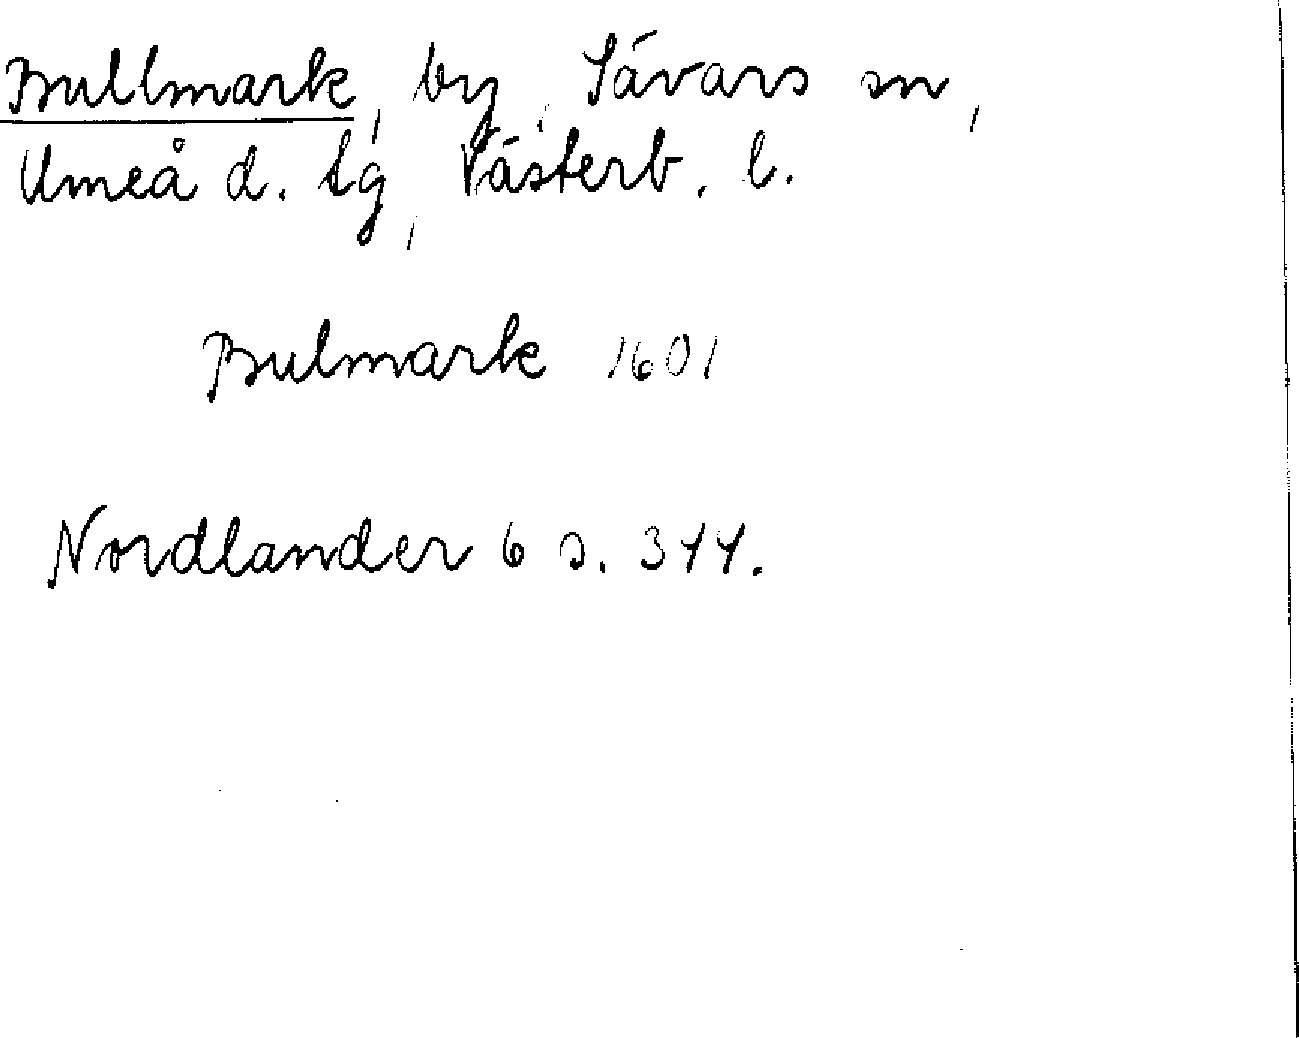 Bullmark, by, Sävars sn,
Umeå d. tg, Västerb. l.
Bulmark 1601
Nordlander 6 s. 344.